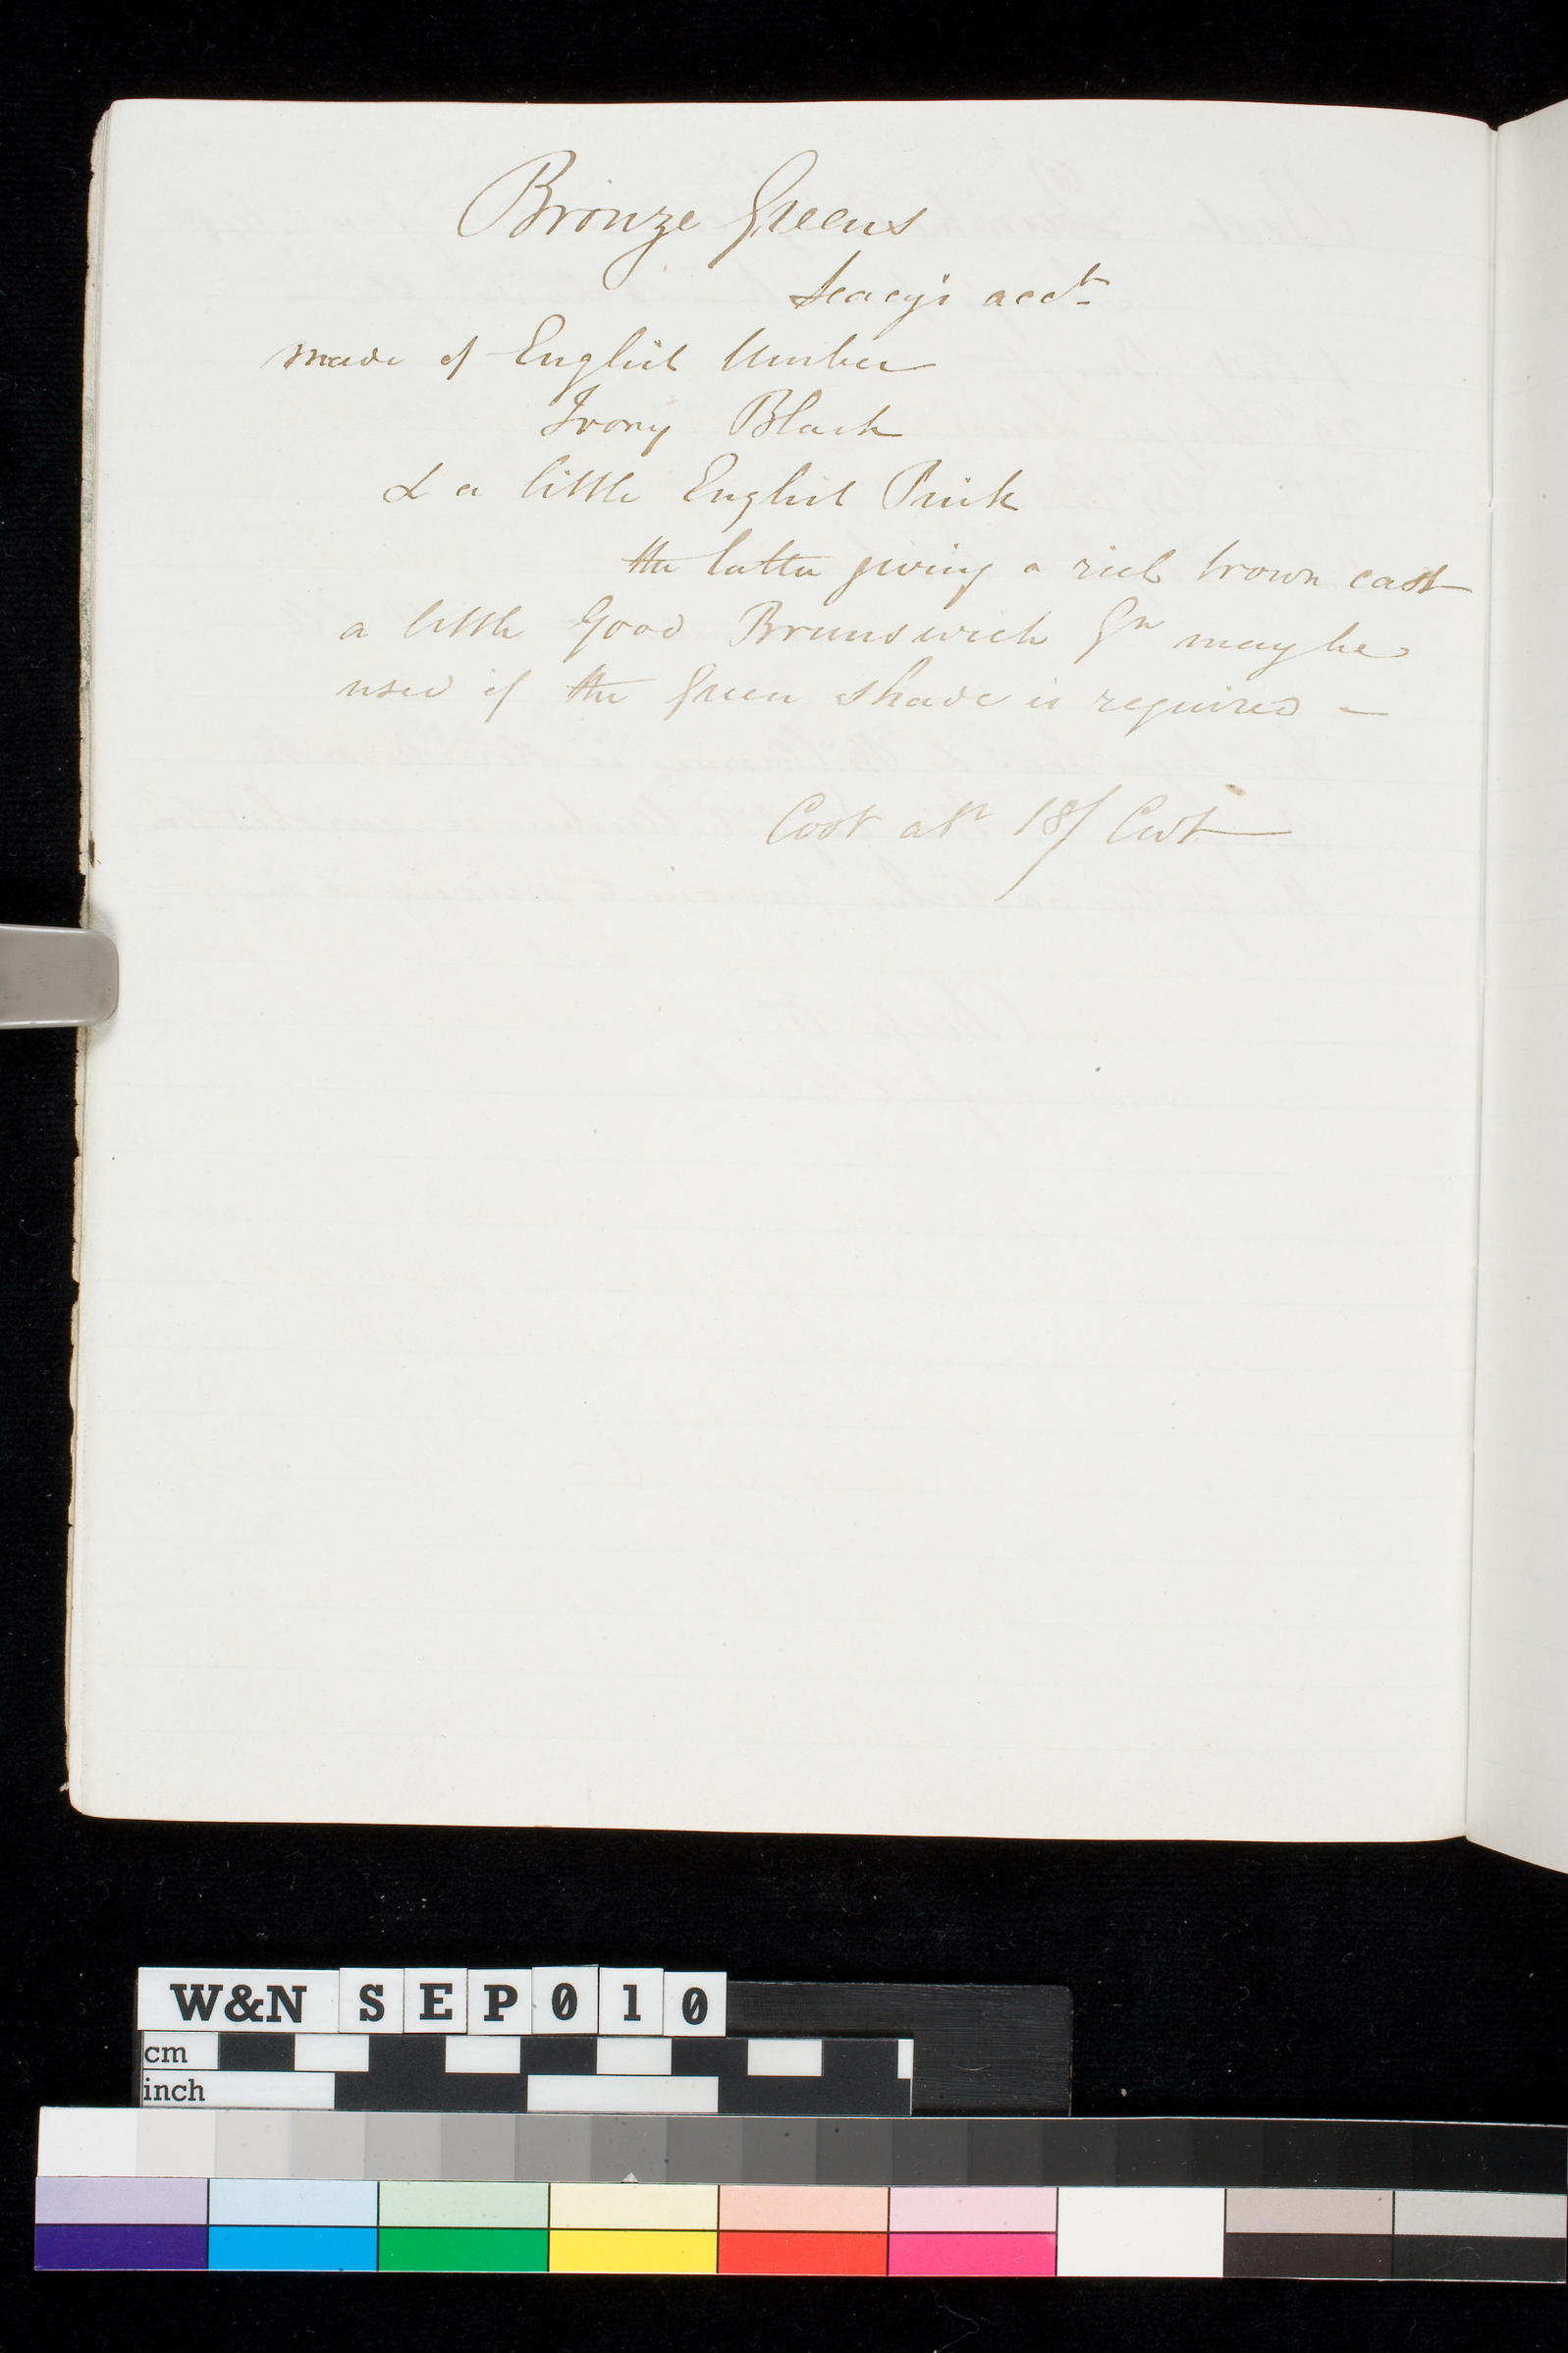 Bronze Greens
Seacy's acct
made of English Umber
Ivory Black
& a little English Pink
the latter giving a rich brown cast
a little Good Brunswick Gn may be
used if the Green shade is required –
Cost abt 18/ Cwt
W&N SEP010
cm
inch